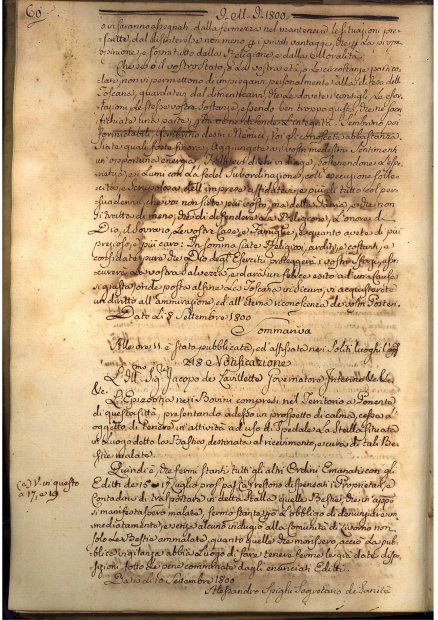 60
D. M. D. 1800
vi saranno assegnati, dalla fermezza nel mantenere le situazioni pre-
scritte, dal disinteresse non meno
opinione, e sopratutto dalla Religione, e dalla Moralità.
Che se o il vostro stato, o la vostra età, o le circostanze partico-
lari non vi permettono di impiegarvi personalmente alla difesa della
Toscana, guardatevi dal dimenticarvi, che le dovete i consigli, le esor-
tazioni, e le stesse vostre sostanze, essendo ben troppo giusto, che ne sacri-
fichiate una parte, a chi
formidabili i nostri Nemici, Voi gli conoscete abbastanza,
Aggiungete ai vostri medesimi sentimenti
un proporzionato energia,
e i lumi con la fedel subordinazione, coll'esecuzione solle-
cita, e scrupolosa dell'imprese affidatevi, e più di tutto col per-
suadervi, che voi non siete più vostri, ma della Patria, e che non
si tratta di meno, che di difendere la Religione, l'onore di
Dio, il Sovrano, le vostre Case, e Famiglie, e quanto avete di più
prezioso, e più caro: In somma siate Religiosi, arditi, e costanti, e
confidate pure che Dio degli Eserciti proteggerà i vostri sforzi, assi-
curerà la vostra salvezza, e darà un felice esito ad una causa
sì giusta, onde posta alfine la Toscana in sicuro, vi acquisterete
un diritto all'ammirazione, ed all'eterna riconoscenza de vostri Posteri.
Dato li 8 Settembre 1800
Sommariva
Alle ore 11 è stato pubblicata, ed affissata nei Soliti luoghi
218 Notificazione
Sig. Jacopo de Lavillette Governatore Interino &c &c
&c
L'Epizootia nei Bovini compresi nel Territorio a Ponente
di questa Città, presentando adesso un prospetto di calma, cessa l'
oggetto di tenere in attività ad uso di Spedale la Stalla situata
in Luogo detto la Bastia, destinata al ricevimento, e cura di tali Bes-
tie malate.
Quindi è, che fermi stanti tutti gli altri Ordini Emanati con gli
Editti de 15 e 17 Luglio pross. pas. (a) restono dispensati i Proprietari, e
Contadini di trasportare in detta Stalla quelle Bestie, che in appres-
si manifestassero malate, fermo stante però l'obbligo di denunziare im-
mediatamente, e senza alcuno indugio alla Comunità di Livorno non
solo le Bestie ammalate, quanto quelle che morissero, acciò la pu-
bblica vigilanza abbia luogo di fare tenere ferme le già date dispo-
sizioni, sotto le pene comminate dagli enunciati Editti.
Dato li 10 Settembre 1800
Alessandro Spighi Segretario di Sanità
(a) V. in questo
a 17, e 19